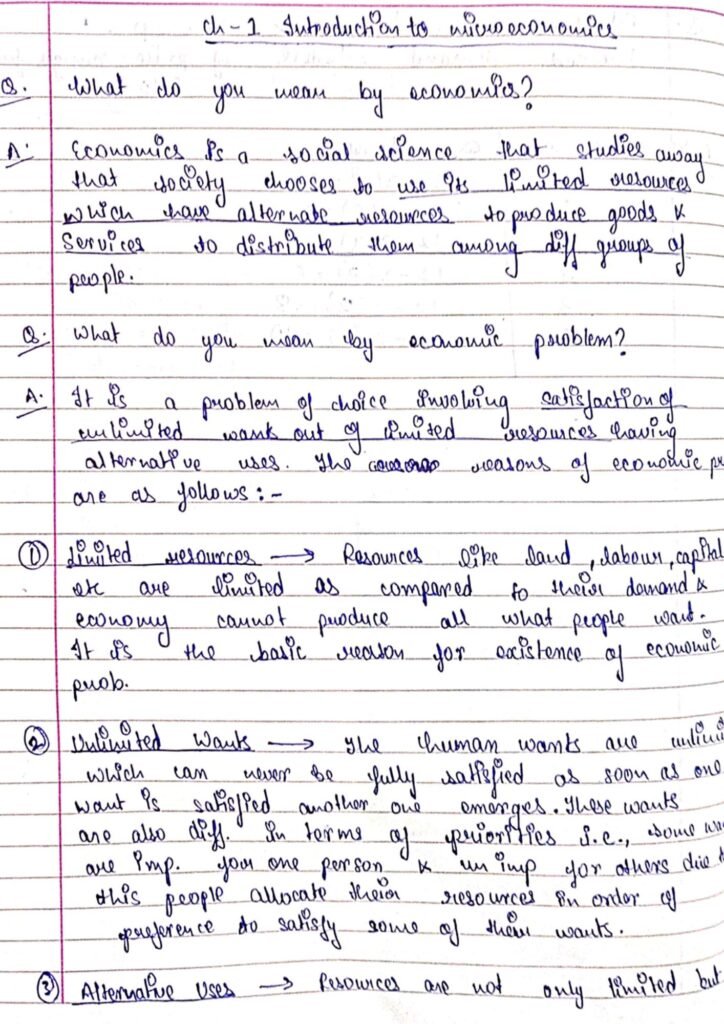 Ch-1 Introduction to microeconomics
Q. What do you mean by economics?
A. Economics is a social science that studies away
that society chooses to use its limited resources
which have alternate resources to produce goods &
Services to distribute them among diff groups of
people.
Q. What do you mean by economic problem?
A. It is a problem of choice involving satisfaction of
unlimited wants out of limited resources having
alternative uses. The reasons of economic pr
are as follows :-
① Limited resources → Resources like land, labour, capital
etc are limited as compared to their demand &
economy cannot produce all what people want.
It is the basic reason for existence of economic
prob.
② Unlimited Wants → The human wants are unlimi
which can never be fully satisfied as soon as one
want is satisfied another one emerges. These wants
are also diff. in terms of priorities i.e., some wa
are imp. for one person & un imp for others due t
this people allocate their resources in order of
preference to satisfy some of their wants.
③ Alternative Uses → Resources are not only limited but